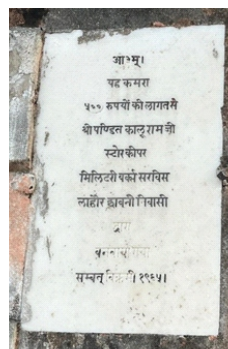 ओ३म्।
यह कमरा
५०० रुपयों की लागत से
श्री पण्डित कालूराम जी
स्टोरकीपर
मिलिटरी वर्कस सरविस
लाहौर छावनी निवासी
सम्बत् १९६५।